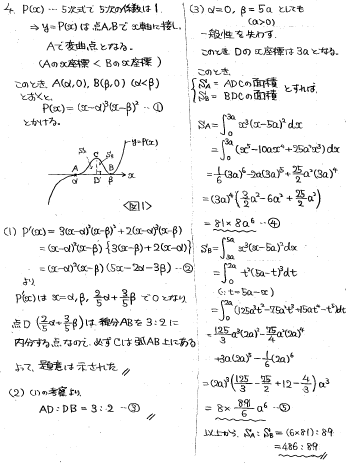 4. P(x) … 5次式で 5次の係数は1.
⇒ y=P(x)は点A,Bで x軸に接し,
Aで変曲点となる。
(Aのx座標 < Bのx座標)
このとき A(α,0), B(β,0) (α<β)
とおくと,
P(x)=(x-α)³(x-β)² …①
とかける。
y=P(x)
S_A S_B
A C B
α D β x
<図1>
(1) P'(x)= 3(x-α)²(x-β)²+2(x-α)³(x-β)
=(x-α)²(x-β){3(x-β)+2(x-α)}
=(x-α)²(x-β)(5x-2α-3β) …②
より
P'(x)は x=α,β, 2/5α+3/5β で0となり
点D (2/5α+3/5β)は線分ABを 3:2に
内分する点なので, 必ずCは弧AB上にある
よって, 題意は示された
(2) (1)の考察より,
AD:DB=3:2 …③
(3) α=0, β=5a としても
(a>0)
一般性を失わず.
このとき Dのx座標は3aとなる。
このとき.
{ S_A = ADCの面積
S_B = BDCの面積 とすれば,
S_A=∫₀^{3a} x³(x-5a)²dx
=∫₀^{3a}(x⁵-10ax⁴+25a²x³)dx
=1/6(3a)⁶-2a(3a)⁵+25/4a²(3a)⁴
=(3a)⁴(3/2a²-6a²+25/4a²)
=81×8a⁶ …④
S_B=∫_{3a}^{5a} x³(x-5a)²dx
=∫₀^{2a} t²(5a-t)³dt
(∵ t=5a-x)
=∫₀^{2a}(125a³t²-75a²t³+15at⁴-t⁵)dt
=125/3a³(2a)³-75/4a²(2a)⁴
+3a(2a)⁵-1/6(2a)⁶
=(2a)³(125/3-75/2+12-4/3)a³
=8×89/6a⁶ …⑤
以上から, S_A:S_B=(6×81):89
=486:89